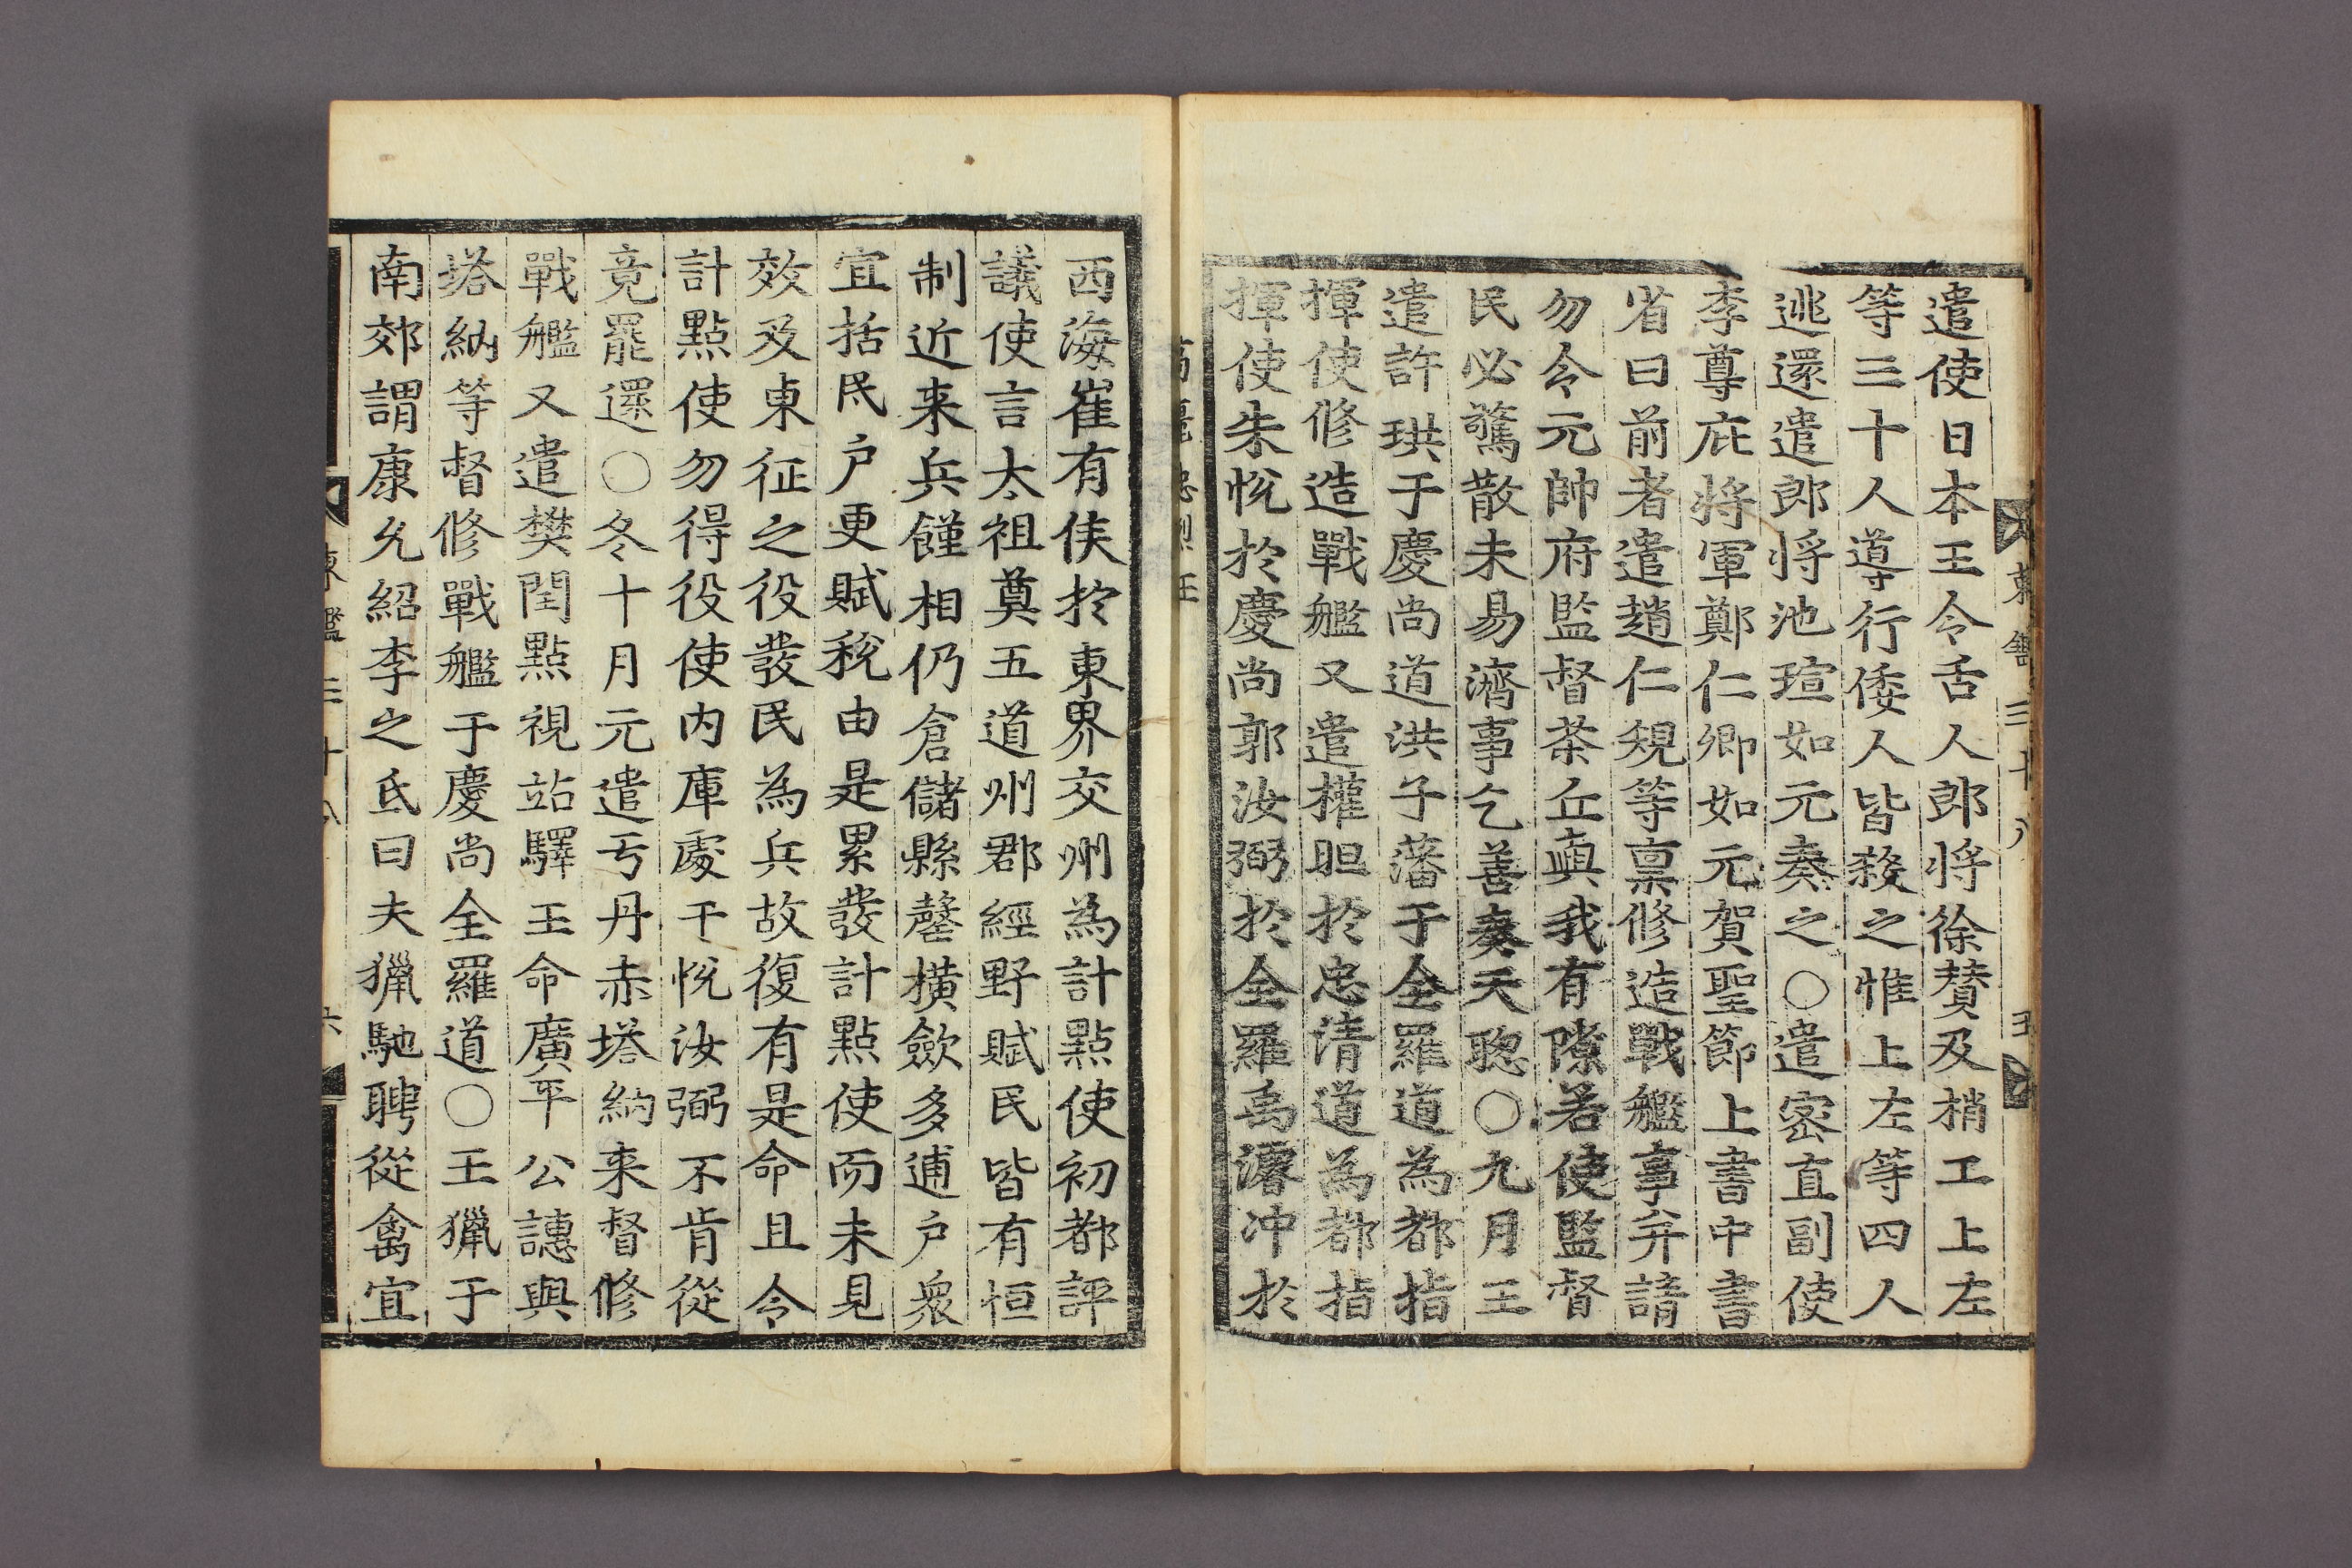 遣使日本王令舌人郎将徐賛及梢工上左
等三十人導行倭人皆殺之惟上左等四人
逃還遣郎将池瑄如元奏之○遣密直副使
李尊庇将軍鄭仁卿如元賀聖節上書中書
省曰前者遣趙仁規等禀修造戰艦事并請
勿令元帥府監督茶丘與我有隙若使監督
民必驚散未易濟事乞善奏天聦○九月王
遣許珙于慶尚道洪子藩于全羅道為都指
揮使修造戰艦又遣權㫜於忠清道為都指
揮使朱悅於慶尚郭汝弼於全羅禹濬冲於
西海崔有侯於東界交州為計點使初都評
議使言太祖奠五道州郡經野賦民皆有恒
制近来兵饉相仍倉儲縣罄橫歛多逋户衆
宜括民户更賦稅由是累發計點使而未見
效及東征之役發民為兵故復有是命且令
計點使勿得役使内庫處干悅汝弼不肯從
竟罷還○冬十月元遣亐丹赤塔納来督修
戰艦又遣樊閏點視站驛王命廣平公譓與
塔納等督修戰艦于慶尚全羅道○王獵于
南郊謂康允紹李之氐曰夫獵馳騁從禽宜
東鑑三十八